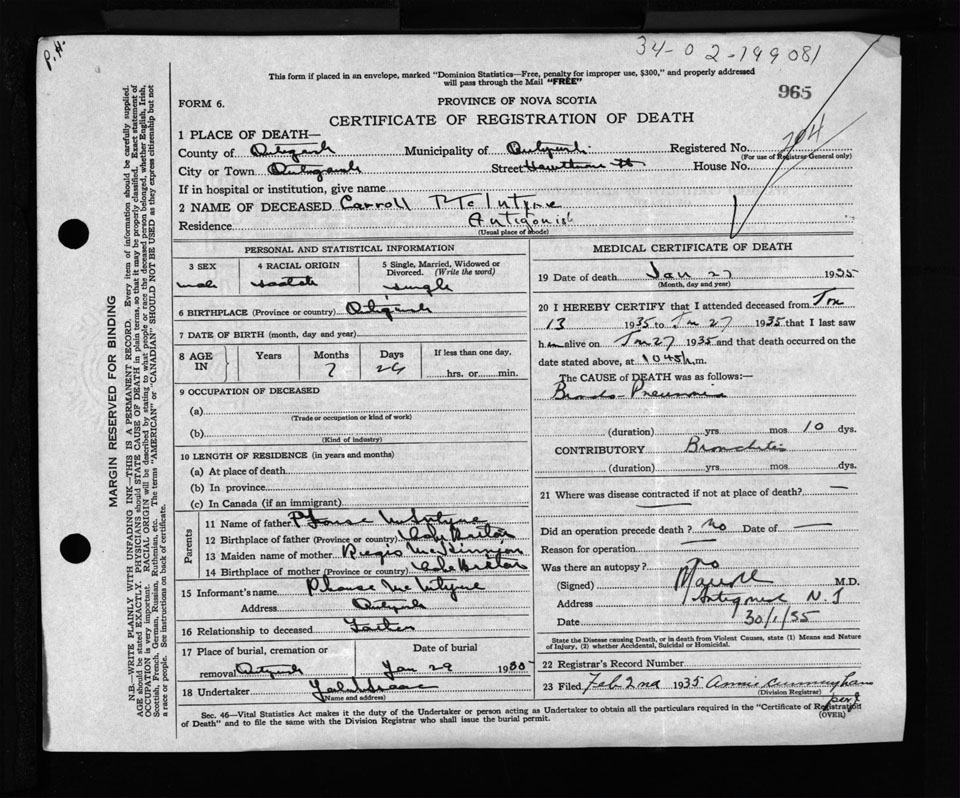 P.H.
34-02-199081
This form if placed in an envelope, marked "Dominion Statistics—Free, penalty for improper use, $300," and properly addressed
will pass through the Mail "FREE"
965
FORM 6.
PROVINCE OF NOVA SCOTIA
CERTIFICATE OF REGISTRATION OF DEATH
704
1 PLACE OF DEATH—
County of Antigonish Municipality of Antigonish Registered No.
(For use of Registrar General only)
City or Town Antigonish Street Hawthorne St House No.
If in hospital or institution, give name
2 NAME OF DECEASED Carroll McIntyre
Residence Antigonish
(Usual place of abode)
PERSONAL AND STATISTICAL INFORMATION
3 SEX male
4 RACIAL ORIGIN Scotch
5 Single, Married, Widowed or Divorced. (Write the word) single
6 BIRTHPLACE (Province or country) Antigonish
7 DATE OF BIRTH (month, day and year)
8 AGE IN Years Months 7 Days 26 If less than one day, hrs. or min.
9 OCCUPATION OF DECEASED
(a)
(Trade or occupation or kind of work)
(b)
(Kind of industry)
10 LENGTH OF RESIDENCE (in years and months)
(a) At place of death
(b) In province
(c) In Canada (if an immigrant)
Parents
11 Name of father McIntyre
12 Birthplace of father (Province or country) Cape Breton
13 Maiden name of mother
14 Birthplace of mother (Province or country) Cape Breton
15 Informant's name McIntyre
Address Antigonish
16 Relationship to deceased Father
17 Place of burial, cremation or removal Antigonish Date of burial Jan 29 1935
18 Undertaker
(Name and address)
MEDICAL CERTIFICATE OF DEATH
19 Date of death Jan 27 1935
(Month, day and year)
20 I HEREBY CERTIFY that I attended deceased from Jan
13 1935 to Jan 27 1935 that I last saw
him alive on Jan 27 1935 and that death occurred on the
date stated above, at 1045 m.
The CAUSE of DEATH was as follows:—
Broncho-Pneumonia
(duration) yrs mos 10 dys.
CONTRIBUTORY Bronchitis
(duration) yrs mos dys.
21 Where was disease contracted if not at place of death? —
Did an operation precede death? No Date of —
Reason for operation —
Was there an autopsy? No
(Signed) M.D.
Address Antigonish N.S
Date 30/1/35
State the Disease causing Death, or in death from Violent Causes, state (1) Means and Nature
of Injury, (2) whether Accidental, Suicidal or Homicidal.
22 Registrar's Record Number
23 Filed Feb 2nd 1935 Annie Cunningham
(Division Registrar)
(OVER)
Sec. 46—Vital Statistics Act makes it the duty of the Undertaker or person acting as Undertaker to obtain all the particulars required in the "Certificate of Registration
of Death" and to file the same with the Division Registrar who shall issue the burial permit.
MARGIN RESERVED FOR BINDING
N.B.—WRITE PLAINLY WITH UNFADING INK—THIS IS A PERMANENT RECORD. Every item of information should be carefully supplied.
AGE should be stated EXACTLY. PHYSICIANS should STATE CAUSE OF DEATH in plain terms, so that it may be properly classified. Exact statement of
OCCUPATION is very important. RACIAL ORIGIN will be described by stating to what people or race the deceased person belonged, whether English, Irish,
Scottish, French, German, Russian, Ruthenian, etc. The terms "AMERICAN" or "CANADIAN" SHOULD NOT BE USED as they express citizenship but not
a race or people. See instructions on back of certificate.